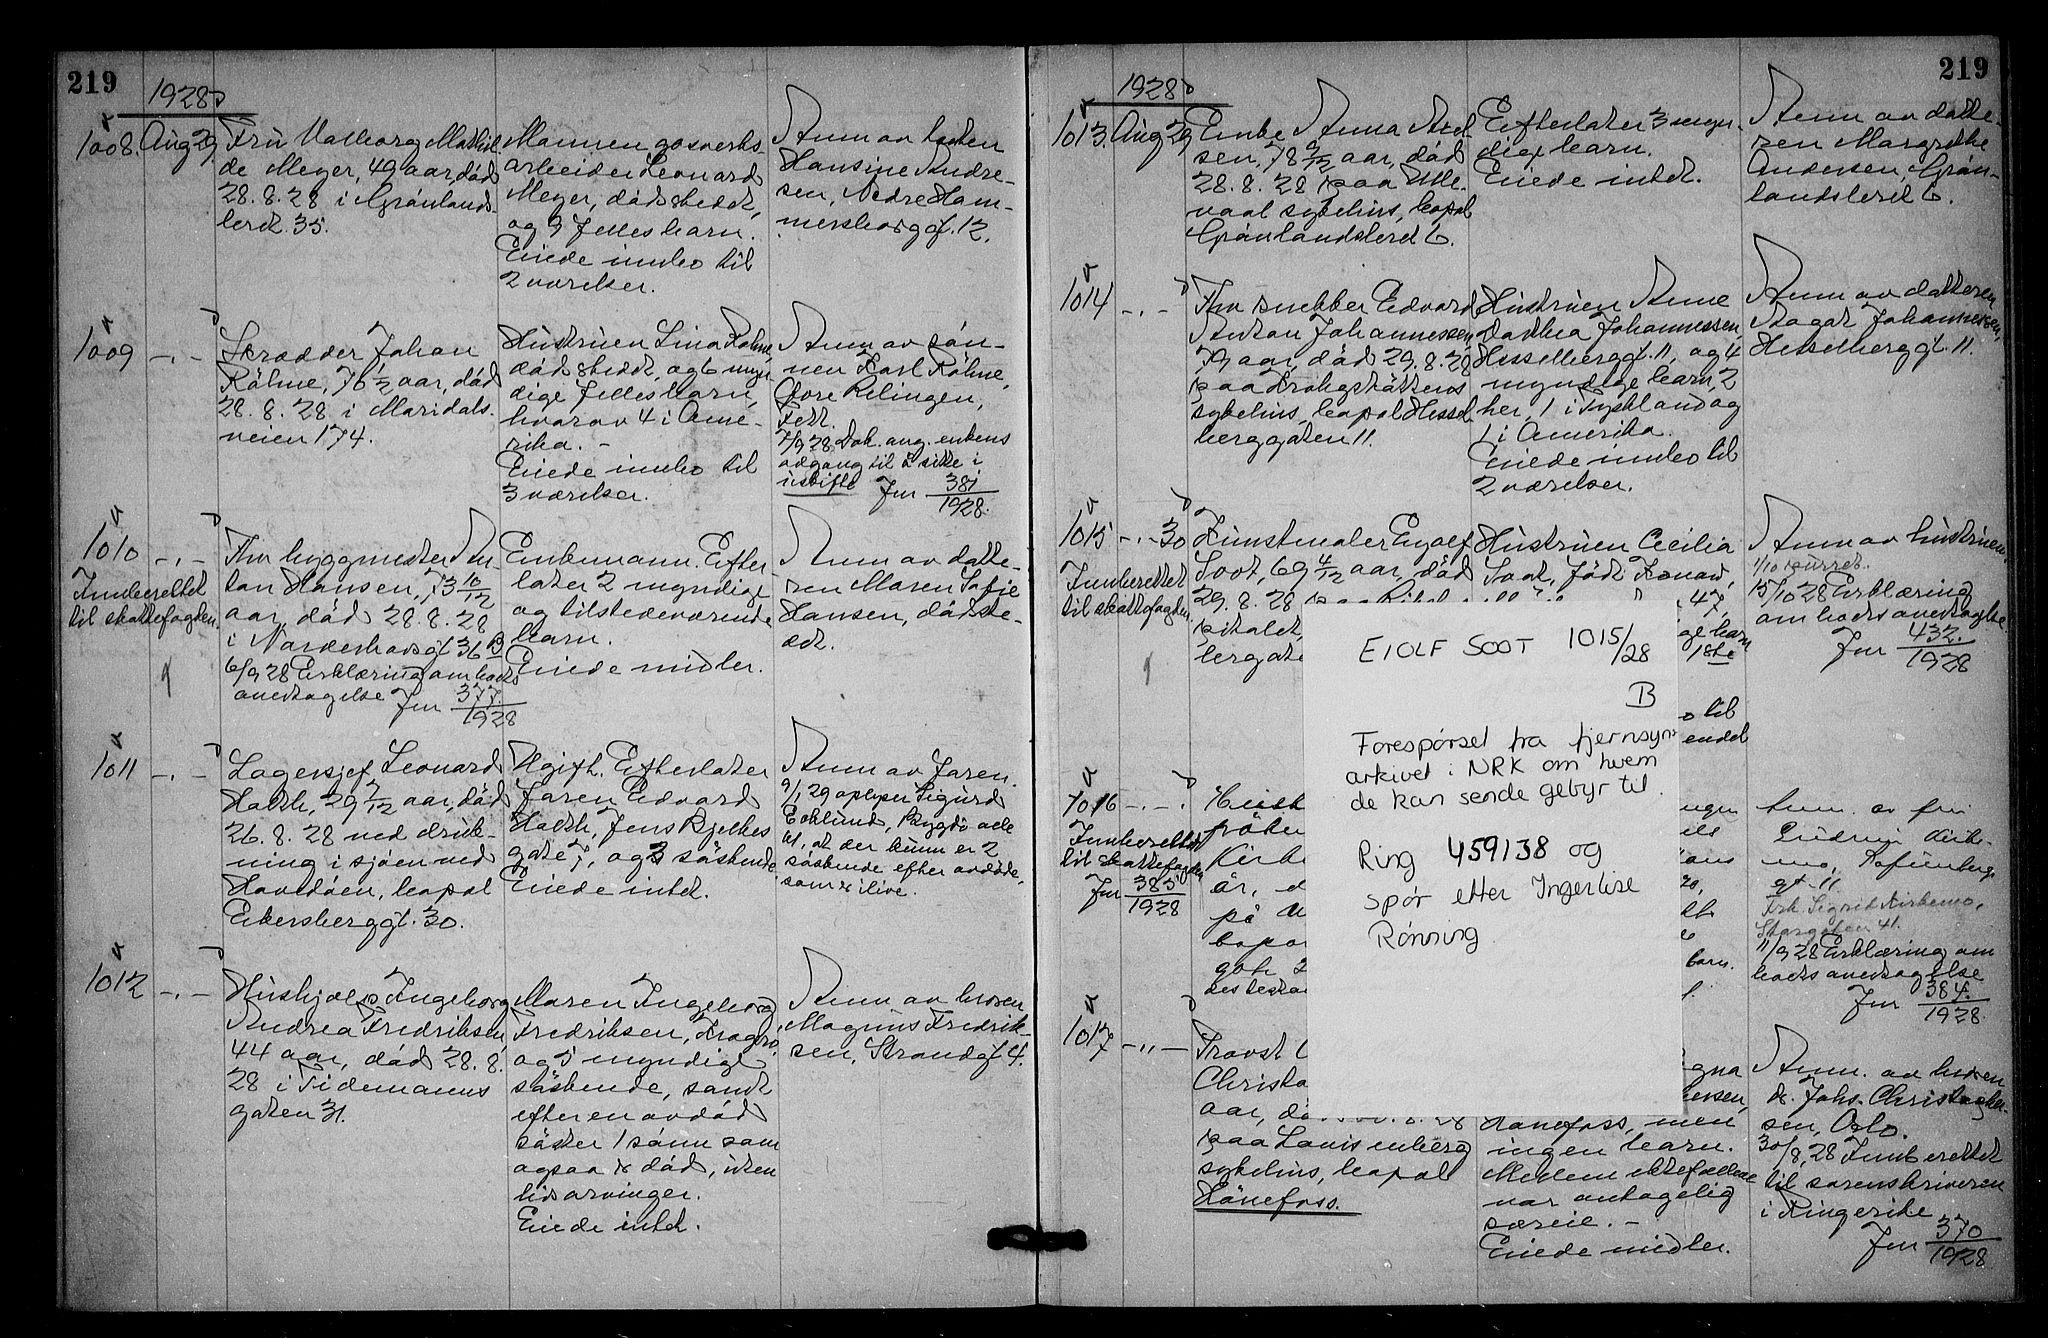 219
1928
1008. Aug 29. Fru Valborg Mathil-
de Meyer, 49 aar, död
28.8.28 i Grönlands-
leret 35.
Mannen gasverks-
arbeider Leonard
Meyer, dödsstedet,
og 3 fellesbarn.
Eiede innbo til
2 værelser.
Anm av
Hansine Andre-
sen, Nedre Ham-
mersborggt. 12.
1009 -.- Skrædder Johan
Röhne, 76 1/2 aar, död
28.8.28 i Maridals-
veien 174.
Hustruen Lina Röhne,
dödsstedet, og 6 myn-
dige fellesbarn,
hvorav 4 i Ame-
rika. -
Eiede innbo til
3 værelser.
Anm av sön-
nen Karl Röhne,
Övre Relingen,
Fett.
7/9 28 Dok. ang. enkens
adgang til å sitte i
uskifte Jnr 381/1928.
1010 -.-
Innberettet
til skattefogden.
Fhv byggmester An-
ton Hansen, 73 10/12
aar, död 28.8.28
i Norderhovsgt 36 B
6/9 28 Erklæring om bods
overtagelse Jnr 377/1928
Enkemann. Efter-
later 2 myndige
og tilstedeværende
barn.
Eiede midler.
Anm av datte-
ren Maren Sofie
Hansen, dödsste-
det.
1011 -.- Lagersjef Leonard
Holth, 29 7/12 aar, död
26.8.28 ved druk-
ning i sjöen ved
Hovedöen, bopæl
Eckersberggt. 30.
Ugift. Efterlater
faren Edvard
Holth, Jens Bjelkes
gate 7, og 3 söskende
Eiede intet.
Anm av faren.
9/1 29 oplyser Sigurd
Ecklund, Bygdö alle
41, at der kunn er 2
söskende efter avdöde,
som er ilive.
1012 -.- Hushjelp Ingeborg
Andrea Fredriksen,
44 aar, död 28.8.
28 i Tidemanns
gaten 31.
Moren Ingeborg
Fredriksen, Kragerö,
og 5 myndige
söskende, samt
efter en avdöd
söster 1 sönn som
ogsaa er död, uten
livsarvinger.
Eiede intet.
Anm av broren
Magnus Fredrik-
sen, Strandgt 4.
219
1928
1013 Aug 29 Enke Anna Axel-
sen, 78 9/12 aar, död
28.8.28 paa Ulle-
vaal sykehus, bopæl
Grönlandsleret 6.
Efterlater 3 myn-
dige barn.
Eiede intet.
Anm av datte-
ren Margrethe
Andersen, Grön-
landsleret 6.
1014 -.- Fhv snekker Edvard
Anton Johannessen,
79 aar, död 29.8.28
paa Krohgstöttens
sykehus, bopæl Hessel-
berggaten 11.
Hustruen Anne
Dorthea Johannessen,
Hesselberggt. 11, og 4
myndige barn, 2
her, 1 i Tyskland og
1 i Amerika.
Eiede innbo til
2 værelser.
Anm av datteren
Aagot Johannessen,
Hesselberggt. 11.
1015 -.- 30
Innberettet
til skattefogden
Kunstmaler Eyolf
Soot, 69 4/12 aar, död
29.8.28 paa
pitalet,
bergate
Hustruen Cecilia
Soot, född
47,
ge barn
18te
til
endel
Anm av hustruen.
1/10
15/10 28 Erklæring
om bods overtagelse
Jnr 432/1928
EIOLF SOOT 1015/28
B
Forespörsel fra fjernsyns-
arkivet i NRK om hvem
de kan sende gebyr til.
Ring 459138 og
spör etter Ingerlise
Rönning
1016 -.-
Innberettet
til skattefogden
Jnr 385/1928
Kirke
år, d
på
bopæl
gate 2
barn.
Anm. av fru
Gudrun Kirke-
mo, Kofinberg
gt. 11.
Frk. Sigrid Kirkemo,
Storgaten 41.
11/9 28 Erklæring om
bods overtagelse
Jnr 384/1928
1017 -"- Provst
Christo
aar, dö
paa Lovisenberg
sykehus, bopæl
Hönefoss.
gna
Hönefoss, men
ingen barn.
Mellem ektefellene
var antagelig
særeie. -
Eiede midler.
Anm. av broren
dr. Johs. Christopher-
sen, Oslo.
30/8 28 Innberettet
til sorenskriveren
i Ringerike
Jnr 370/1928